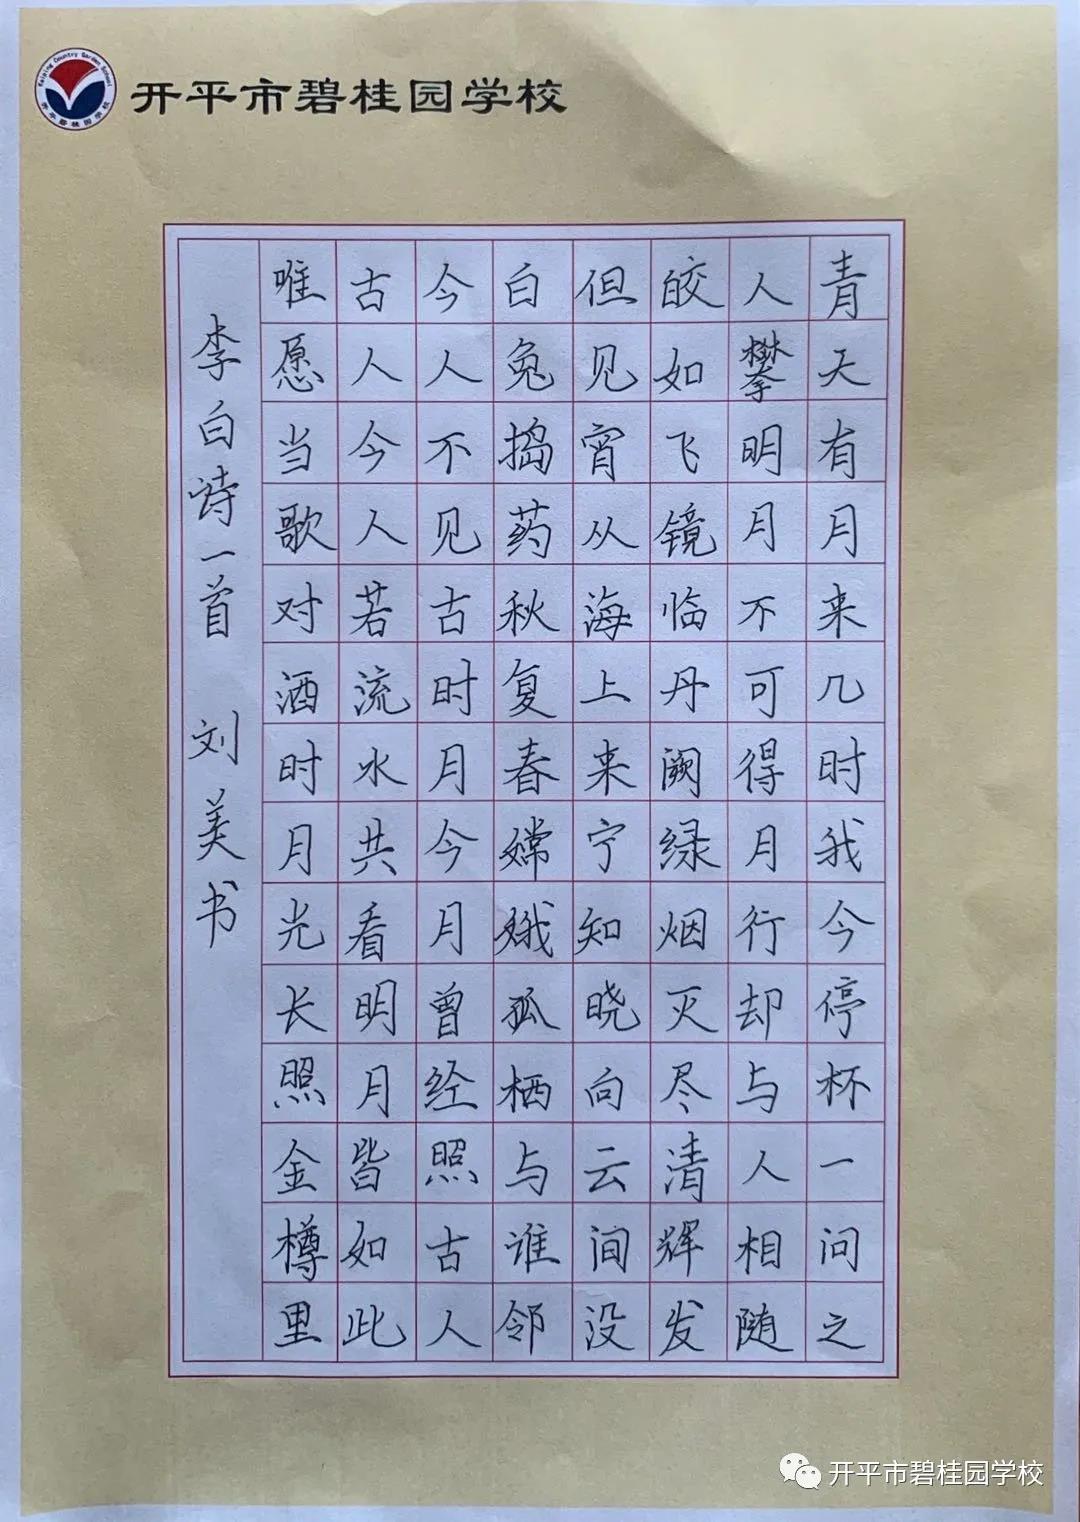 Kaiping Country Garden School
开平碧桂园学校
开平市碧桂园学校
青天有月来几时我今停杯一问之
人攀明月不可得月行却与人相随
皎如飞镜临丹阙绿烟灭尽清辉发
但见宵从海上来宁知晓向云间没
白兔捣药秋复春嫦娥孤栖与谁邻
今人不见古时月今月曾经照古人
古人今人若流水共看明月皆如此
唯愿当歌对酒时月光长照金樽里
李白诗一首 刘美书
开平市碧桂园学校